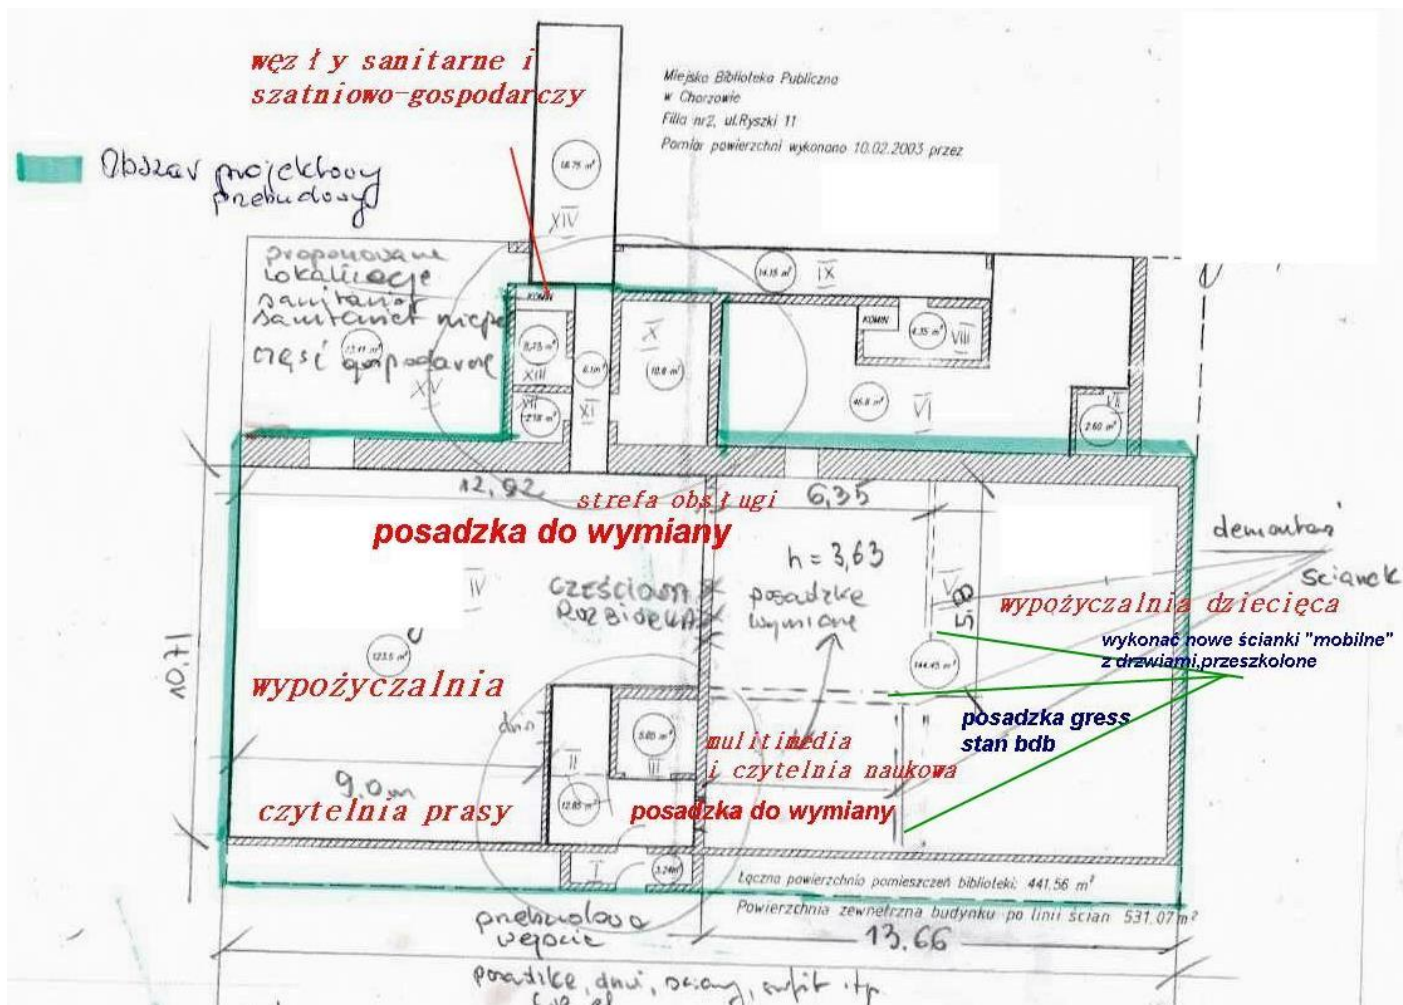 węzły sanitarne i
szatniowo-gospodarczy
Miejska Biblioteka Publiczna
w Chorzowie
Filia nr2, ul.Ryszki 11
Pomiar powierzchni wykonano 10.02.2003 przez
Obszar projektowy
przebudowy
proponowane
lokalizacje
sanitariat
sanitariat niepe
część gospodarcze
XV
18.75 m²
XIV
14.15 m²
IX
KOMIN
XIII
XII
XI
X
10.8 m²
KOMIN
4.35 m²
VIII
VI
VII
2.60 m²
12,92
strefa obsługi
6,35
posadzka do wymiany
h = 3,63
IV
częściowa
rozbiórka
posadzkę
wymianę
V
5,8
demontaż
ścianek
wypożyczalnia dziecięca
wykonać nowe ścianki "mobilne"
z drzwiami,przeszkolone
10,71
123.5 m²
144.45 m²
wypożyczalnia
posadzka gress
stan bdb
drzwi
mulitimedia
i czytelnia naukowa
II
III
9,0 m
12.85 m²
czytelnia prasy
posadzka do wymiany
I
3.24m²
Łączna powierzchnia pomieszczeń biblioteki: 441.56 m²
Powierzchnia zewnętrzna budynku po linii ścian 531.07 m²
przebudowa
wejście
13,66
posadzkę, drzwi, ściany, sufit itp.